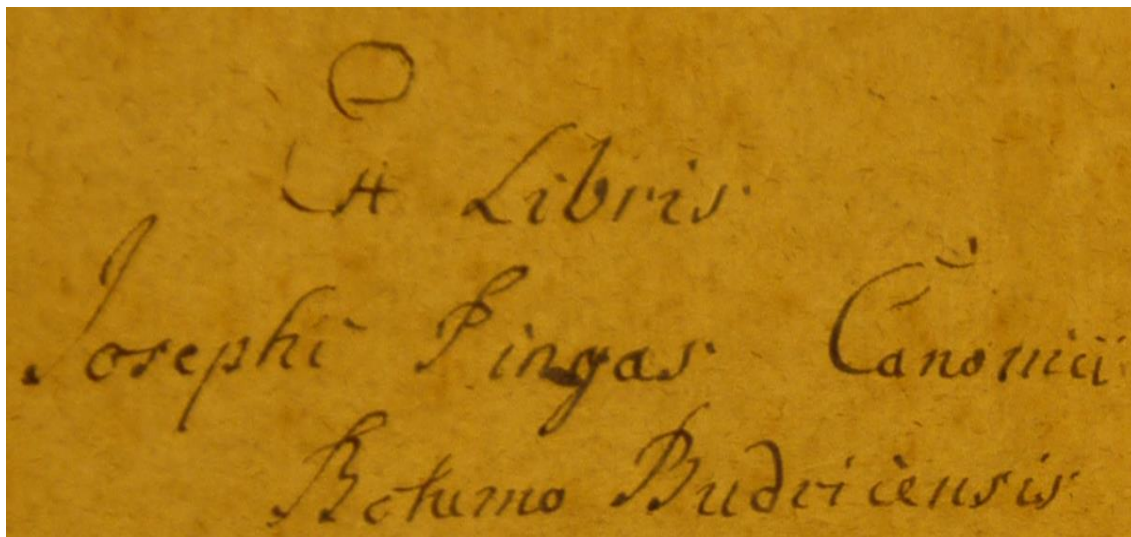 Ex Libris
Josephi Pingas Canonicii
Rotumo Budricensis